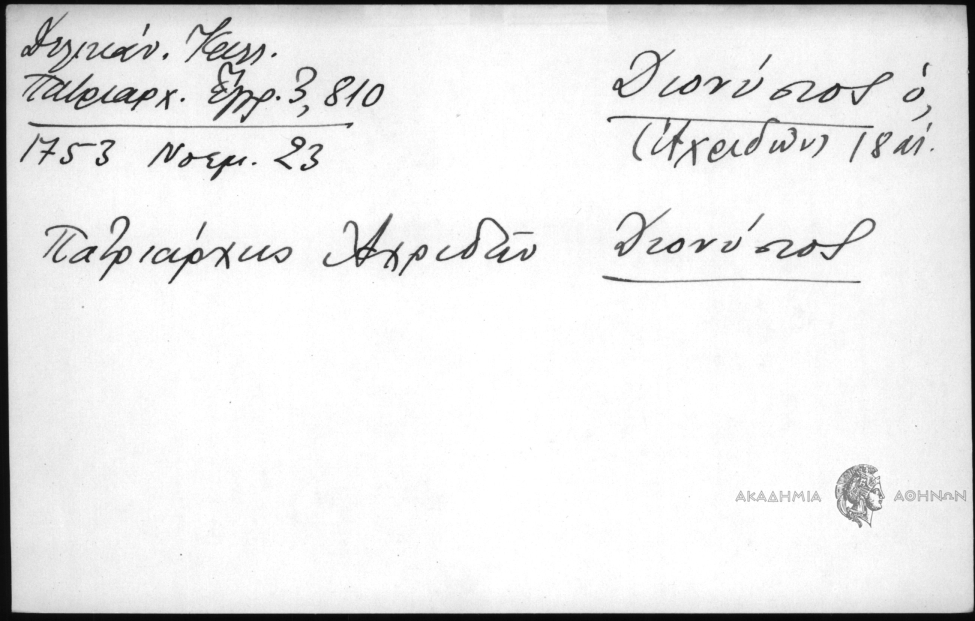 Δελικάν. Καλλ.
Πατριαρχ. Έγγρ. 3, 810
1753 Νοεμ. 23
Διονύσιος ό,
(Ἀχριδῶν) 18 αἰ.
Πατριάρχης Ἀχριδῶν Διονύσιος
ΑΚΑΔΗΜΙΑ ΑΘΗΝΩΝ